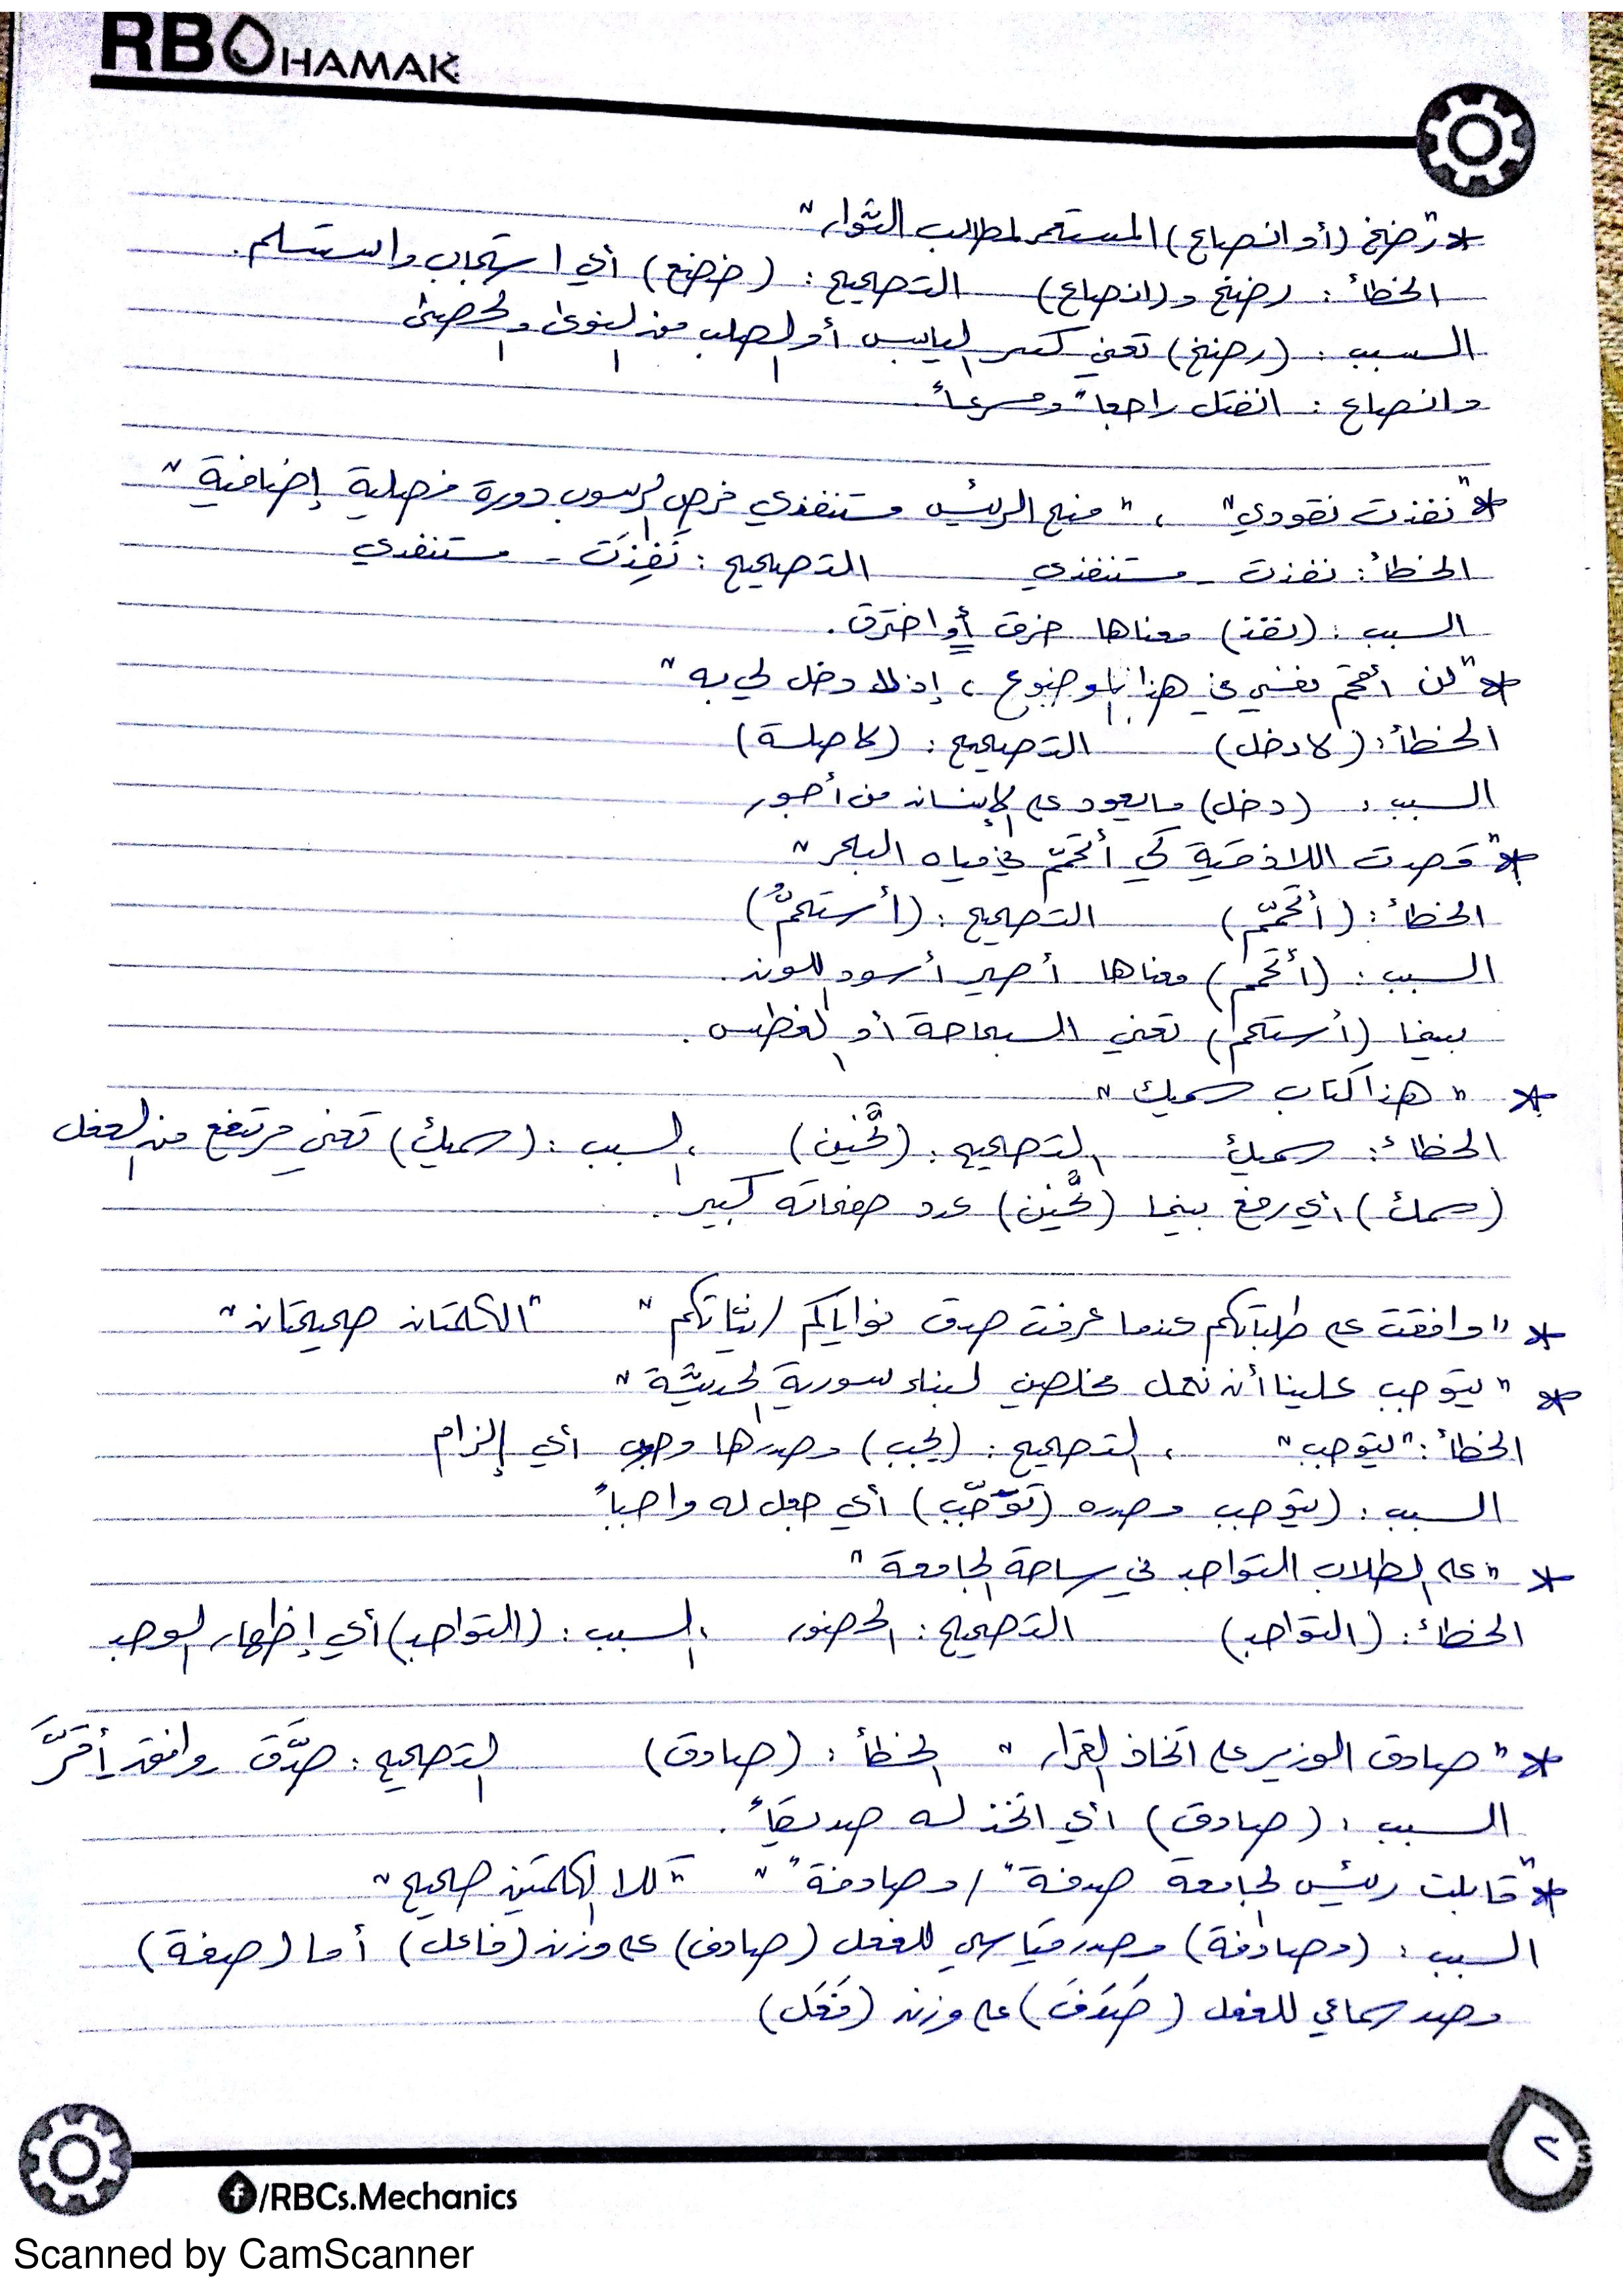 RBOHAMAK
* "رضخ (أو انصاع) المستعمر لمطالب الثوار"
الخطأ: رضخ و(انصاع) التصحيح: (خضع) أي استجاب واستسلم.
السبب: (رضخ) تعني كسر اليابس أو الصلب من النوى والحصى
وانصاع: انفتل راجعاً ومسرعاً.
* "نفذت نقودي" ، "منح الرئيس مستنفذي فرص الرسوب دورة فصلية إضافية"
الخطأ: نفذت - مستنفذي التصحيح: نَفِدَت - مستنفدي
السبب: (نفذ) معناها خرق أو اخترق.
* "لن أقحم نفسي في هذا الموضوع ، إذ لا دخل لي به"
الخطأ: (لا دخل) التصحيح: (لا صلة)
السبب: (دخل) ما يعود على الإنسان من أجور
* "قصدت اللاذقية كي أتحمّم في مياه البحر"
الخطأ: (أتحمّم) التصحيح: (أستحمُّ)
السبب: (أتحمم) معناها أصير أسود اللون.
بينما (أستحم) تعني السباحة أو الغطس.
* "هذا كتاب سميك"
الخطأ: سميك التصحيح: (ثخين) ، السبب: (سميك) تعني مرتفع من الفعل
(سمك) أي رفع بينما (ثخين) عدد صفحاته كبير.
* "وافقت على طلباتكم عندما عرفت صدق نواياكم / نيّاتكم" "الكلمتان صحيحتان"
* "يتوجب علينا أن نعمل مخلصين لبناء سورية الحديثة"
الخطأ: "يتوجب" ، التصحيح: (يجب) مصدرها وجوب أي إلزام
السبب: (يتوجب مصدره (تَوَجُّب) أي جعل له واجباً
* "على الطلاب التواجد في ساحة الجامعة"
الخطأ: (التواجد) التصحيح: الحضور ، السبب: (التواجد) أي إظهار الوجد
* "صادق الوزير على اتخاذ القرار" الخطأ: (صادق) التصحيح: صدَّق - وافق - أقرَّ
السبب: (صادق) أي اتخذ له صديقاً.
* "قابلت رئيس الجامعة صدفة / مصادفة" "كلا الكلمتين صحيح"
السبب: (مصادفة) مصدر قياسي للفعل (صادف) على وزن (فاعل) أما (صدفة)
مصدر سماعي للفعل (صَدَفَ) على وزن (فَعَل)
٢
/RBCs.Mechanics
Scanned by CamScanner